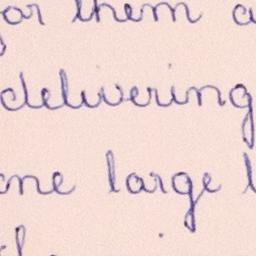 for them a
delivering
one large l